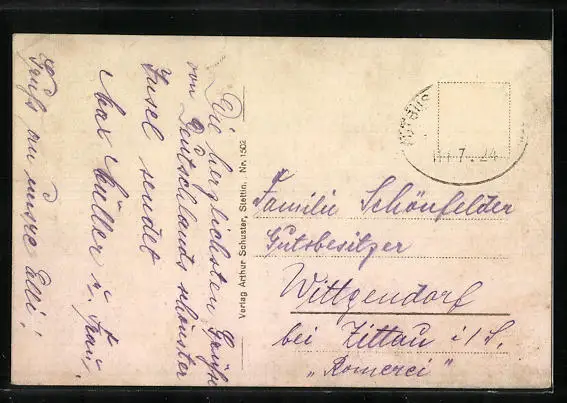 Die herzlichsten Grüße
von Deutschlands schönster
Insel sendet
Max Müller u. Frau!
Gruß an unsre Elli!
Verlag Arthur Schuster, Stettin. Nr. 1502
7.24
Familie Schönfelder
Gutsbesitzer
Wittgendorf
bei Zittau i/S.
"Romerei"